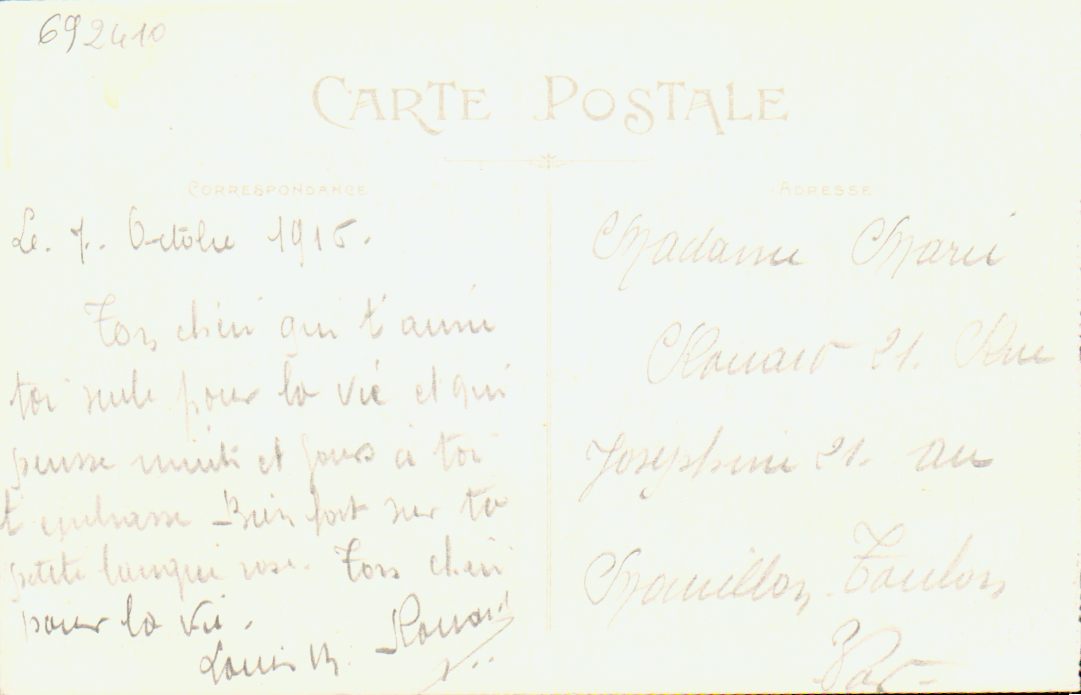 692410
CARTE POSTALE
CORRESPONDANCE
Le. 7. Octobre 1915.
Ton chéri qui t'aime
toi seule pour la vie et qui
pensse nuits et jours à toi
t'embrasse Bien fort sur ta
petite langui rose. Ton chéri
pour la vie.
Louis
Rouard
ADRESSE
Madame Marie
Rouard 21. Rue
Josephine 21. au
Mouillon Toulon
Var